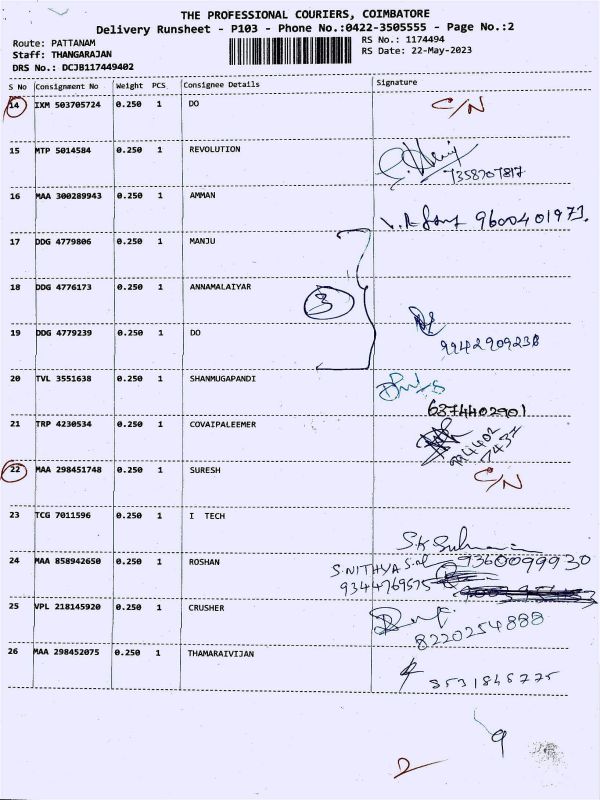 THE PROFESSIONAL COURIERS, COIMBATORE
Delivery Runsheet - P103 - Phone No.:0422-3505555 - Page No.:2
Route: PATTANAM
RS No.: 1174494
Staff: THANGARAJAN
RS Date: 22-May-2023
DRS No.: DCJB117449402
S No Consignment No Weight PCS Consignee Details Signature
14 IXM 503705724 0.250 1 DO C/N
15 MTP 5014584 0.250 1 REVOLUTION
7358707817
16 MAA 300289943 0.250 1 AMMAN
9600401973.
17 DDG 4779806 0.250 1 MANJU
18 DDG 4776173 0.250 1 ANNAMALAIYAR
3
19 DDG 4779239 0.250 1 DO
9942909238
20 TVL 3551638 0.250 1 SHANMUGAPANDI
6374402901
21 TRP 4230534 0.250 1 COVAIPALEEMER
22 MAA 298451748 0.250 1 SURESH C/N
23 TCG 7011596 0.250 1 I TECH
9360099930
24 MAA 858942650 0.250 1 ROSHAN
S.NITHYA
9344769575
25 VPL 218145920 0.250 1 CRUSHER
8220254888
26 MAA 298452075 0.250 1 THAMARAIVIJAN
9
2